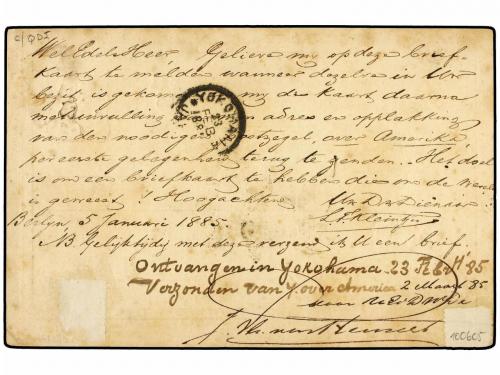 c/QDI
WelEdele Heer Gelieve my op deze brief-
kaart te melden wanneer dezelve in Uw
bezit is gekomen my de kaart daarna
met invulling adres en opplakking
van den nodigen postzegel, over Amerika,
per eerste gelegenheid terug te zenden. Het doel
is om een briefkaart te hebben die om de wereld
is geweest! Hoogachtend Uw Dw Dienaar
YOKOHAMA
23
FEB
Berlyn, 5 Januari 1885.
NB Gelijktijdig met deze verzend ik U een brief.
Ontvangen in Yokohama 23 Feb '85
Verzonden van Y. over America 2 Maart 85
door
100605